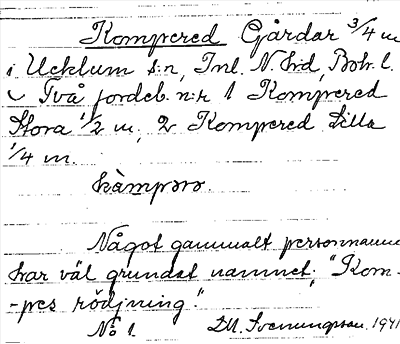 Kompered Gårdar 3/4 m
i Ucklum s:n, Inl. N. hd, Boh. l.
Två jordeb. n:r 1 Kompered
Stora 1/2 m, 2 Kompered Lilla
1/4 m.
Något gammalt personnamn
har väl grundat namnet; "Kom-
-pes rödjning".
No 1. D.H. Svenungsson. 1941